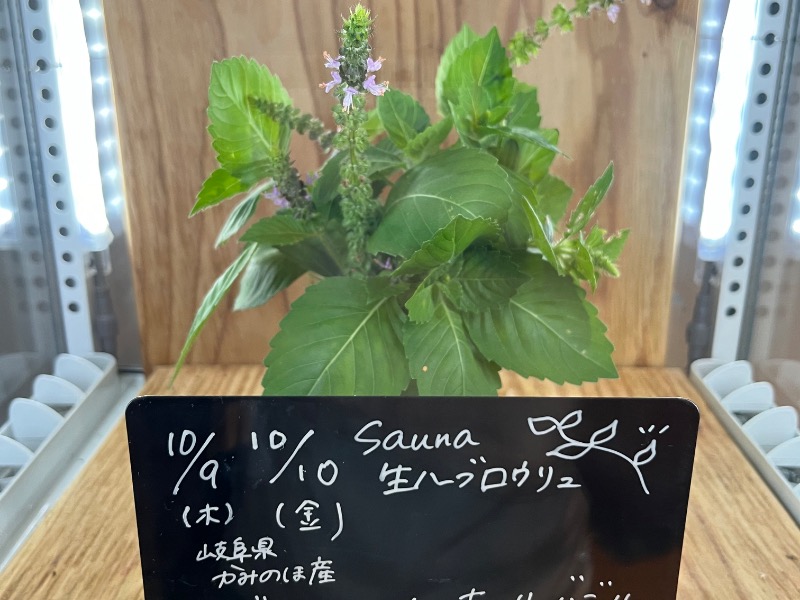 10/9 10/10 Sauna
(木) (金) 生ハーブロウリュ
岐阜県
かみのほ産